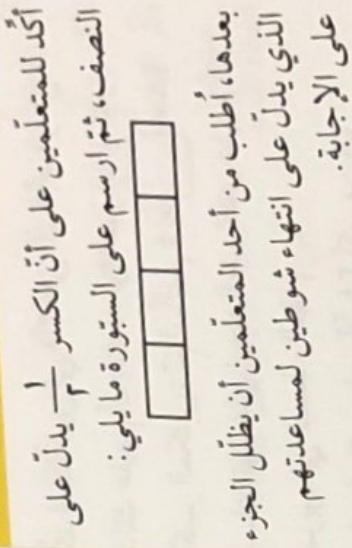 أكّد للمتعلّمين على أنّ الكسر ١/٢ يدلّ على
النصف، ثمّ ارسم على السّبّورة ما يلي:
بعدها، أُطلب من أحد المتعلّمين أن يظلّل الجزء
الذي يدلّ على انتهاء شوطين لمساعدتهم
على الإجابة.